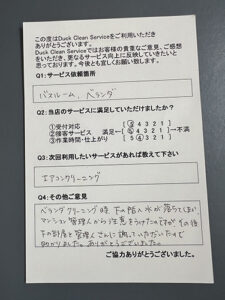 この度はDuck Clean Serviceをご利用いただき
ありがとうございます。
Duck Clean Serviceではお客様の貴重なご意見、ご感想
をいただき、更なるサービス向上に反映していきたいと
思っております。今後とも宜しくお願い致します。
Q1:サービス依頼箇所
バスルーム、ベランダ
Q2:当店のサービスに満足していただけましたか?
①受付対応 ⑤ 4 3 2 1
②接客サービス 満足ー ⑤ 4 3 2 1 ー不満
③作業時間・仕上がり 5 ④ 3 2 1
Q3:次回利用したいサービスがあれば教えて下さい
エアコンクリーニング
Q4:その他ご意見
ベランダクリーニング時 下の階へ水が落ちてしまい
マンション管理人から注意をうけたのですが、その後
下の部屋と管理人さんに謝っていただいたので
助かりました。ありがとうございました。
ご協力ありがとうございました。